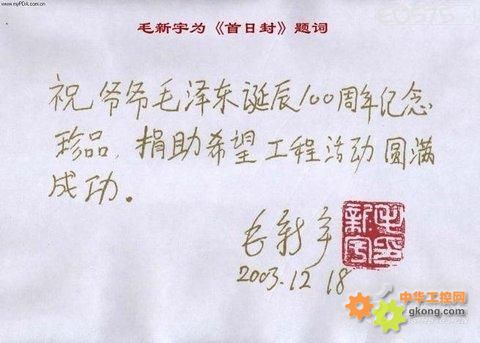 www.myPDA.com.cn
毛新宇为《首日封》题词
祝爷爷毛泽东诞辰100周年纪念
珍品，捐助希望工程活动圆满
成功。
毛新宇
2003.12.18
毛新宇印
中华工控网
gkong.com